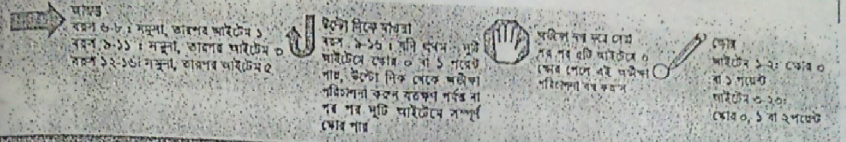 আরম্ভ
বয়স ৬-৮ : নমুনা, তারপর আইটেম ১
বয়স ৯-১১ : নমুনা, তারপর আইটেম ৩
বয়স ১২-১৬: নমুনা, তারপর আইটেম ৫
উল্টো দিকে যাওয়া
বয়স ৯-১৬ : যদি প্রথম দুটি
আইটেমে স্কোর ০ বা ১ পয়েন্ট
পায়, উল্টো দিক থেকে অভীক্ষা
পরিচালনা করুন যতক্ষণ পর্যন্ত না
পর পর দুটি আইটেমে সম্পূর্ণ
স্কোর পায়
অভীক্ষা বন্ধ করে দেয়া
পর পর আইটেমে ০
স্কোর পেলে এই অভীক্ষা
পরিচালনা বন্ধ করুন
স্কোর
আইটেম ১-২: স্কোর ০
বা ১ পয়েন্ট
আইটেম ৩-২০:
স্কোর ০, ১ বা ২পয়েন্ট